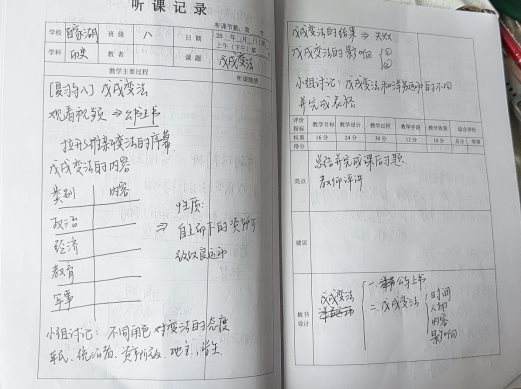 听课记录
听课节数：第 节
学校 班级 八 日期 20 年 月 日（周 ）
上午（下午）第 节
学科 历史 教者 课题 戊戌变法
教学主要过程 听课随感
[复习导入] 戊戌变法
观看视频 ⇒ 公车上书
拉开了维新变法的序幕
戊戌变法的内容
类别 内容
政治
经济
教育
军事
性质：
⇒ 自上而下的资产阶
改良运动
小组讨论：不同角色对变法的态度
军民、统治者、资本家、地主、学生
戊戌变法的结果 ⇒ 失败
戊戌变法的影响 ① ②
小组讨论：戊戌变法和洋务运动的不同
并完成表格
评价指标 教学目标 教学设计 教学过程 教学手段 教学效果 综合评价
权重 16分 24分 30分 12分 18分 总分 等第
得分
总结并完成课后习题
亮点
教师评讲
建议
板书设计
戊戌变法
一、公车上书
二、戊戌变法
时间
人物
内容
影响